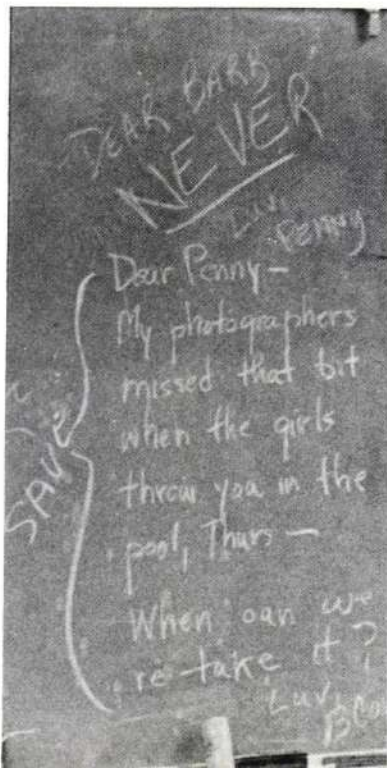 DEAR BARB
NEVER
Luv,
PENNY
Dear Penny—
My photographers
missed that bit
when the girls
throw you in the
pool, Thurs —
When can we
re-take it?
Luv,
SAVE